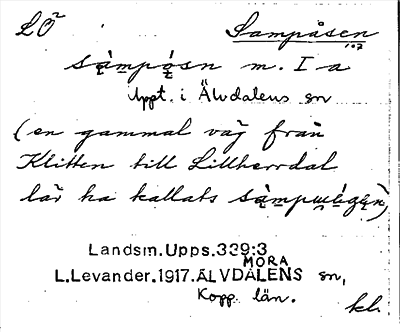 LO² Sampåsen
såmpósn m. I a
Uppt. i Älvdalens sn
(en gammal väg från
Klitten till Lillherrdal
lär ha kallats
Landsm.Upps.339:3
MORA
L.Levander.1917.ÄLVDALENS sn,
Kopp. län.
kl.